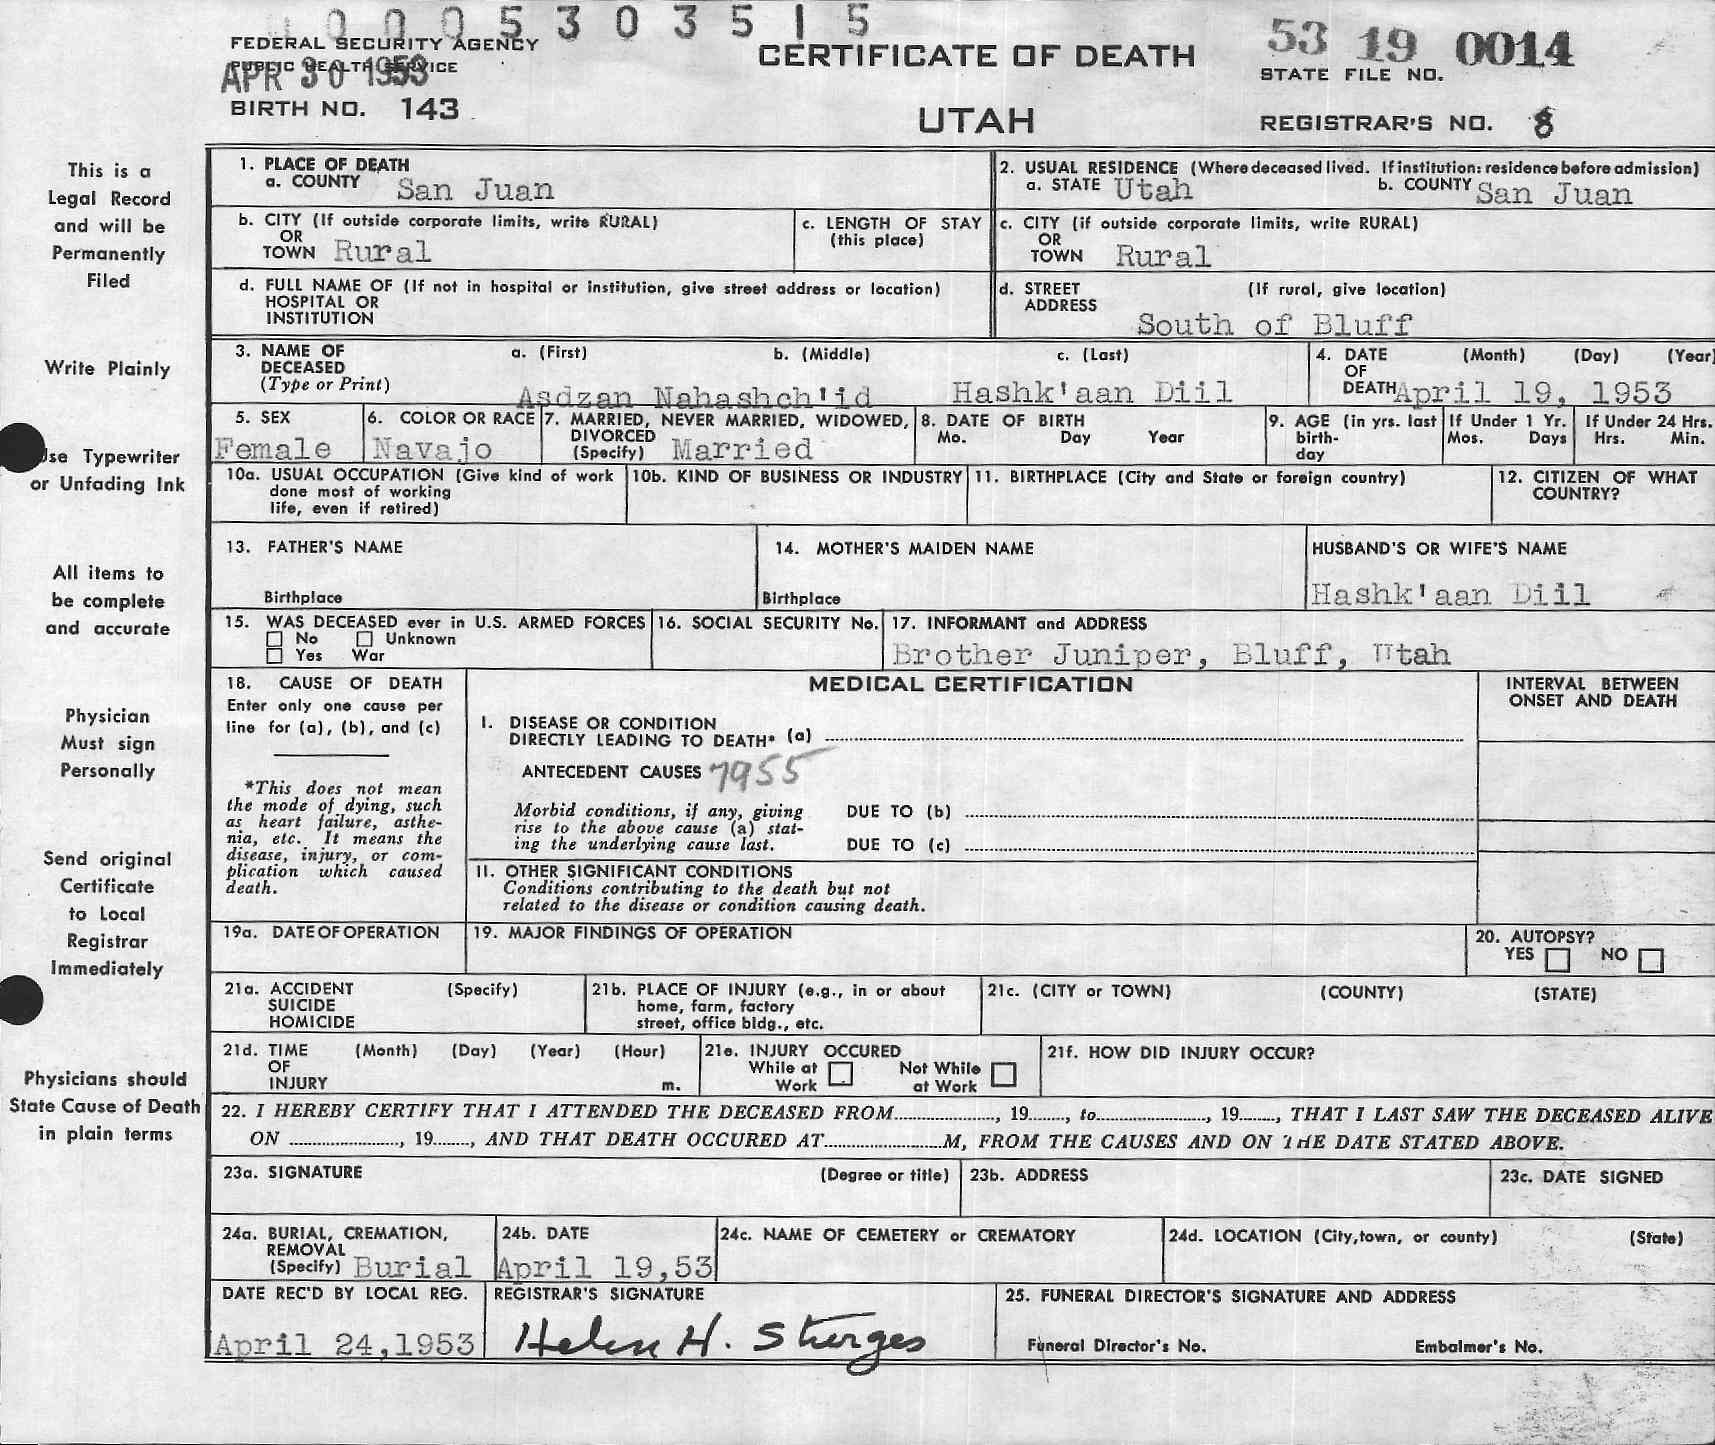 0005303515
FEDERAL SECURITY AGENCY
PUBLIC HEALTH SERVICE
APR 30 1953
BIRTH NO. 143
CERTIFICATE OF DEATH
UTAH
53 19 0014
STATE FILE NO.
REGISTRAR'S NO. 8
This is a
Legal Record
and will be
Permanently
Filed
Write Plainly
Use Typewriter
or Unfading Ink
All items to
be complete
and accurate
Physician
Must sign
Personally
Send original
Certificate
to Local
Registrar
Immediately
Physicians should
State Cause of Death
in plain terms
1. PLACE OF DEATH
a. COUNTY San Juan
2. USUAL RESIDENCE (Where deceased lived. If institution: residence before admission)
a. STATE Utah b. COUNTY San Juan
b. CITY (If outside corporate limits, write RURAL)
OR
TOWN Rural
c. LENGTH OF STAY
(this place)
c. CITY (if outside corporate limits, write RURAL)
OR
TOWN Rural
d. FULL NAME OF (If not in hospital or institution, give street address or location)
HOSPITAL OR
INSTITUTION
d. STREET (If rural, give location)
ADDRESS
South of Bluff
3. NAME OF a. (First) b. (Middle) c. (Last)
DECEASED
(Type or Print)
Asdzan Nahashch'id Hashk'aan Diil
4. DATE (Month) (Day) (Year)
OF
DEATH April 19, 1953
5. SEX
Female
6. COLOR OR RACE
Navajo
7. MARRIED, NEVER MARRIED, WIDOWED,
DIVORCED
(Specify) Married
8. DATE OF BIRTH
Mo. Day Year
9. AGE (in yrs. last
birth-
day
If Under 1 Yr.
Mos. Days
If Under 24 Hrs.
Hrs. Min.
10a. USUAL OCCUPATION (Give kind of work
done most of working
life, even if retired)
10b. KIND OF BUSINESS OR INDUSTRY
11. BIRTHPLACE (City and State or foreign country)
12. CITIZEN OF WHAT
COUNTRY?
13. FATHER'S NAME
Birthplace
14. MOTHER'S MAIDEN NAME
Birthplace
HUSBAND'S OR WIFE'S NAME
Hashk'aan Diil
15. WAS DECEASED ever in U.S. ARMED FORCES
No Unknown
Yes War
16. SOCIAL SECURITY No.
17. INFORMANT and ADDRESS
Brother Juniper, Bluff, Utah
18. CAUSE OF DEATH
Enter only one cause per
line for (a), (b), and (c)
*This does not mean
the mode of dying, such
as heart failure, asthe-
nia, etc. It means the
disease, injury, or com-
plication which caused
death.
MEDICAL CERTIFICATION
I. DISEASE OR CONDITION
DIRECTLY LEADING TO DEATH* (a)
ANTECEDENT CAUSES 7955
Morbid conditions, if any, giving
rise to the above cause (a) stat-
ing the underlying cause last.
DUE TO (b)
DUE TO (c)
II. OTHER SIGNIFICANT CONDITIONS
Conditions contributing to the death but not
related to the disease or condition causing death.
INTERVAL BETWEEN
ONSET AND DEATH
19a. DATE OF OPERATION
19. MAJOR FINDINGS OF OPERATION
20. AUTOPSY?
YES NO
21a. ACCIDENT (Specify)
SUICIDE
HOMICIDE
21b. PLACE OF INJURY (e.g., in or about
home, farm, factory
street, office bldg., etc.
21c. (CITY or TOWN) (COUNTY) (STATE)
21d. TIME (Month) (Day) (Year) (Hour)
OF
INJURY m.
21e. INJURY OCCURED
While at Not While
Work at Work
21f. HOW DID INJURY OCCUR?
22. I HEREBY CERTIFY THAT I ATTENDED THE DECEASED FROM................, 19......, to................, 19......, THAT I LAST SAW THE DECEASED ALIVE
ON ................, 19......, AND THAT DEATH OCCURED AT................M, FROM THE CAUSES AND ON THE DATE STATED ABOVE.
23a. SIGNATURE (Degree or title)
23b. ADDRESS
23c. DATE SIGNED
24a. BURIAL, CREMATION,
REMOVAL
(Specify) Burial
24b. DATE
April 19,53
24c. NAME OF CEMETERY or CREMATORY
24d. LOCATION (City,town, or county) (State)
DATE REC'D BY LOCAL REG.
April 24,1953
REGISTRAR'S SIGNATURE
Helen H. Sturges
25. FUNERAL DIRECTOR'S SIGNATURE AND ADDRESS
Funeral Director's No. Embalmer's No.